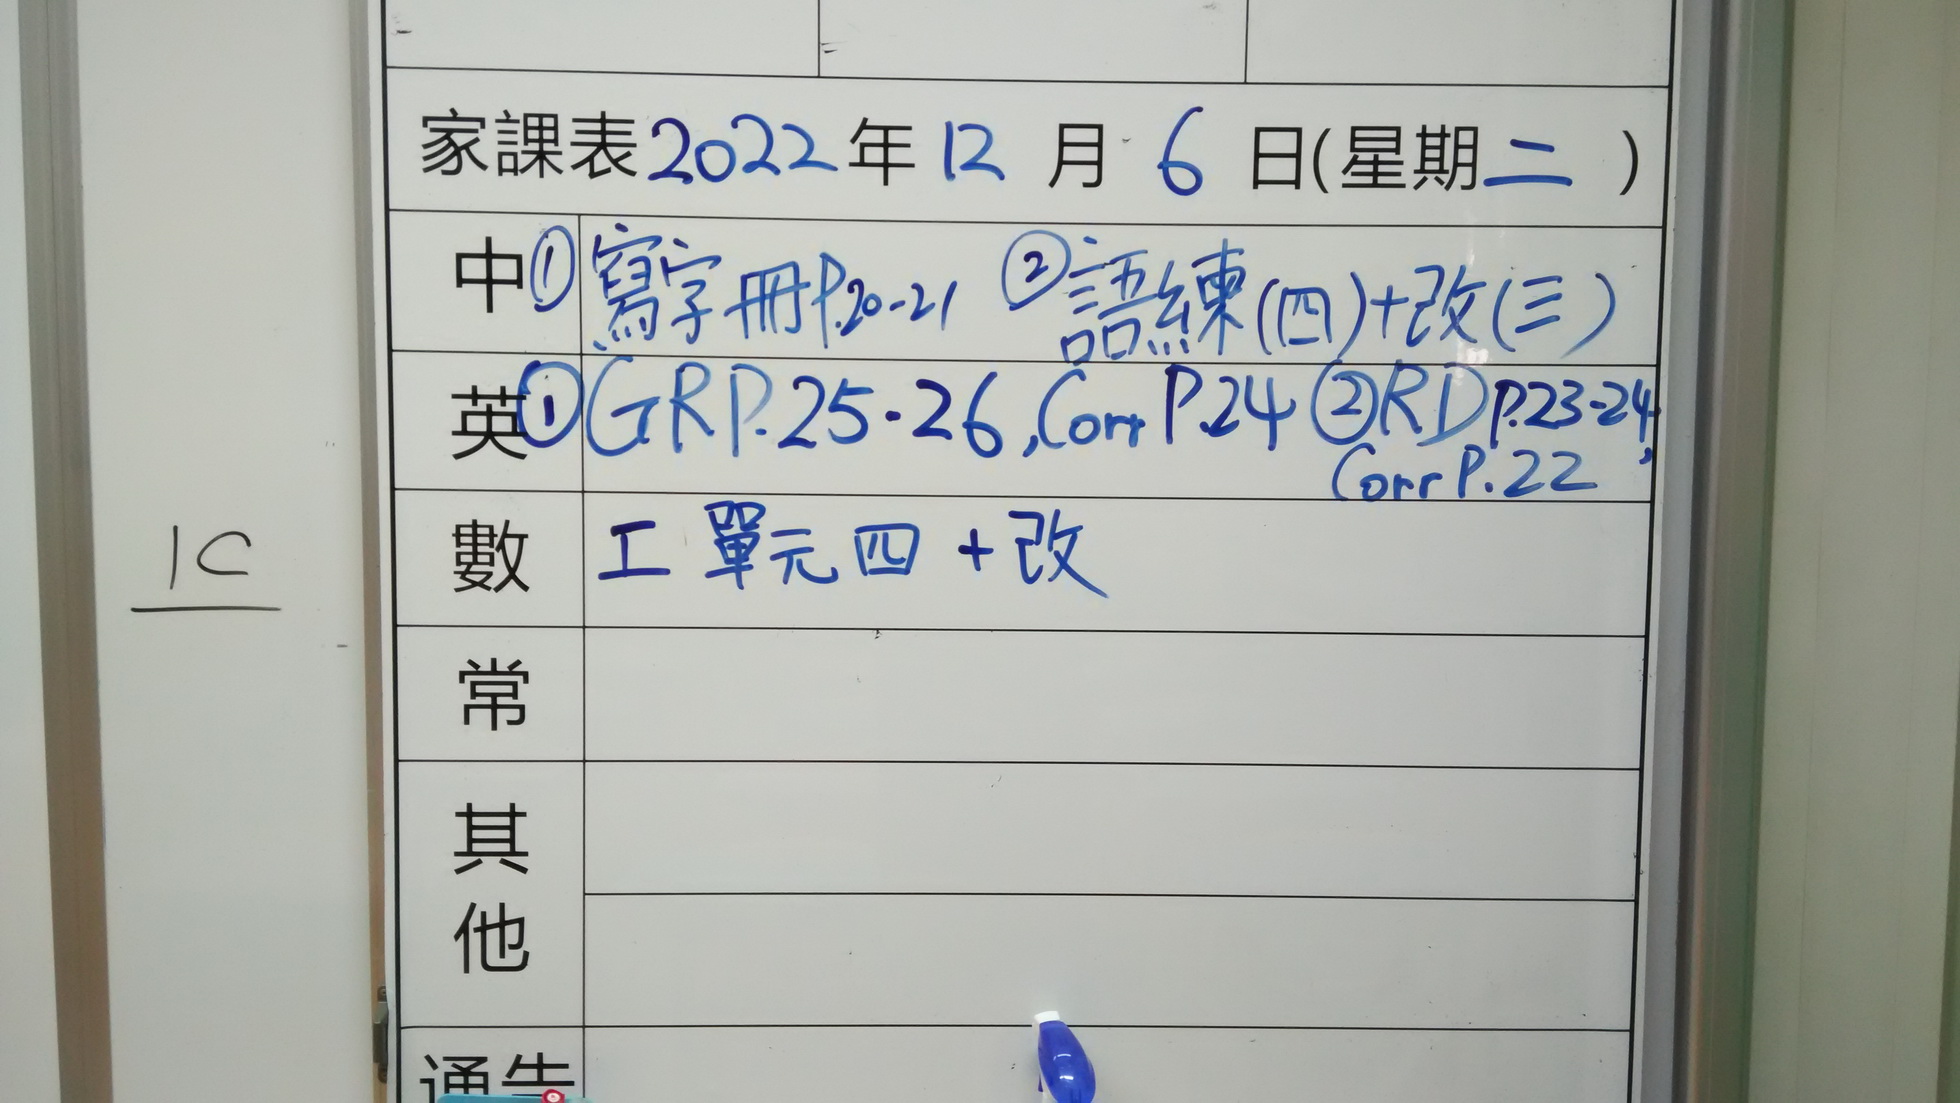 家課表2022年12月6日(星期二)
中①寫字冊P.20-21 ②語練(四)+改(三)
英①GR P.25-26, Corr P.24 ②RD P.23-24,
Corr P.22
數 工 單元四 + 改
1C
常
其
他
通告